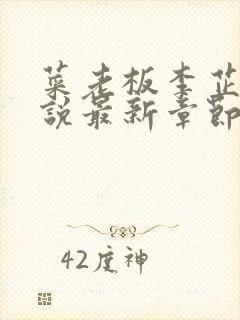 菜老板李芷
說最新章節
42度神